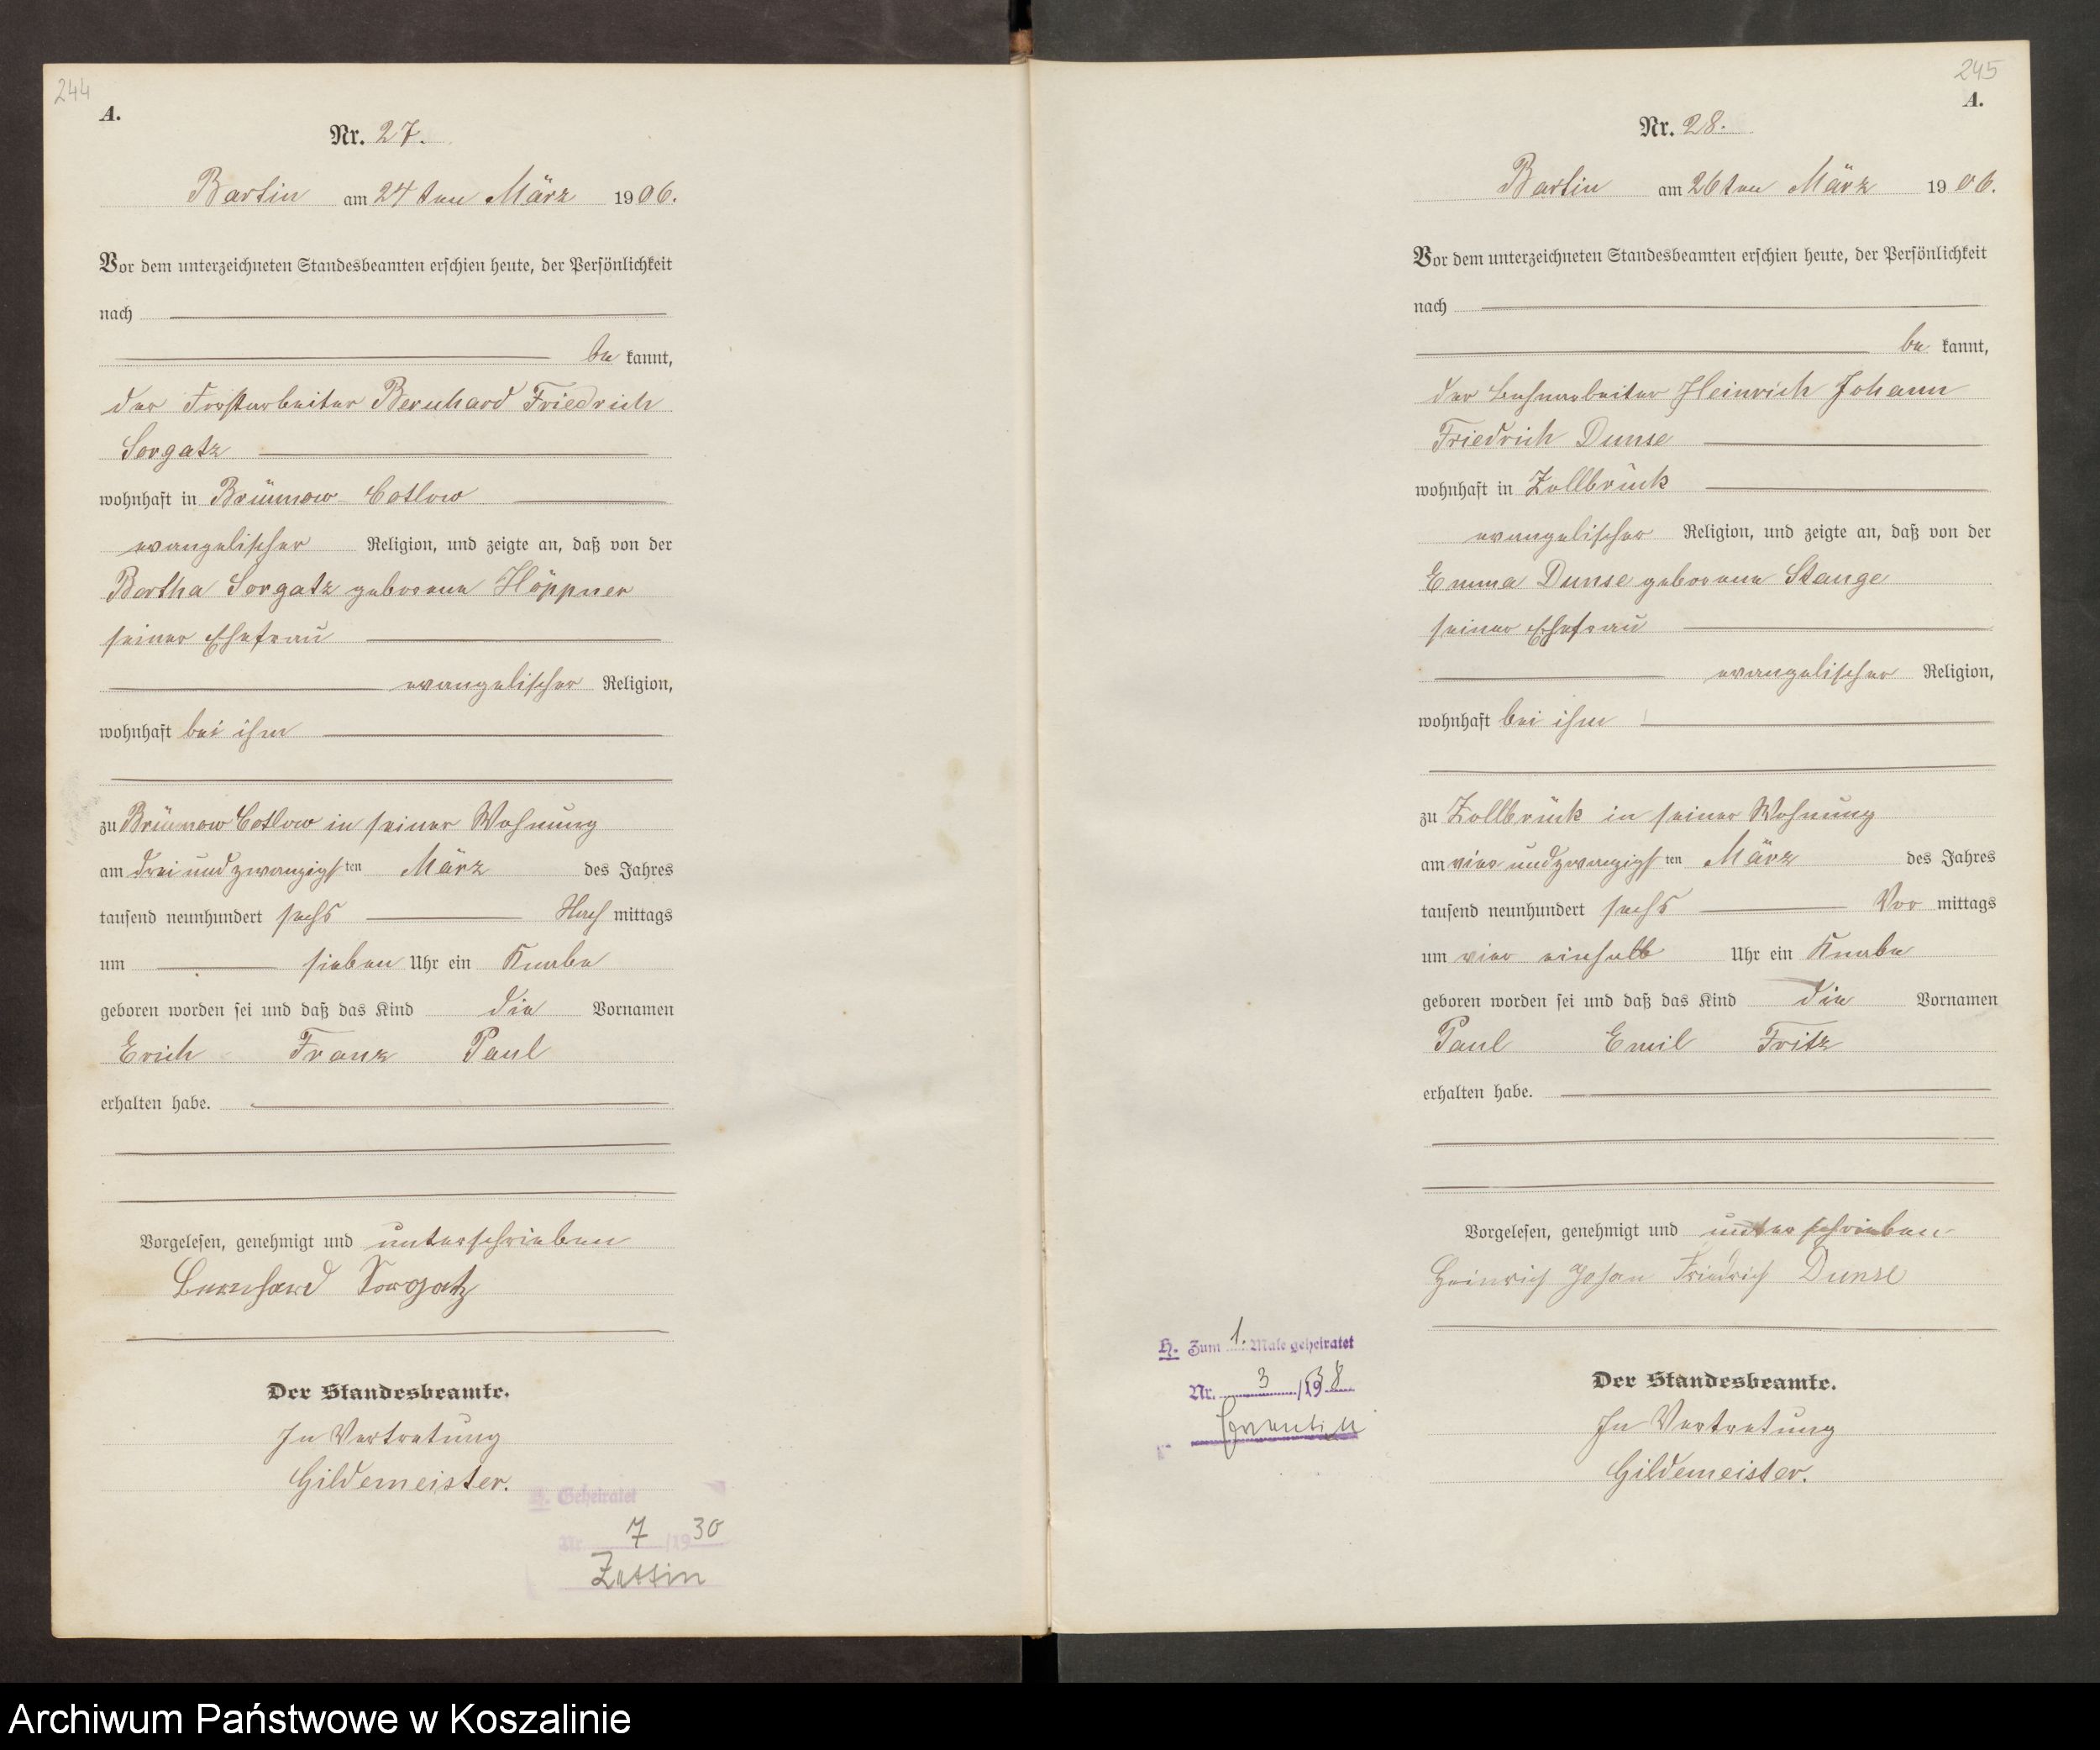 244
A.
Nr. 27.
Bartin am 24ten März 1906.
Vor dem unterzeichneten Standesbeamten erschien heute, der Persönlichkeit
nach
be kannt,
der Forstarbeiter Bernhard Friedrich
Sorgatz
wohnhaft in Brünnow Cotlow
evangelischer Religion, und zeigte an, daß von der
Bertha Sorgatz geborene Höppner
seiner Ehefrau
evangelischer Religion,
wohnhaft bei ihm
zu Brünnow Cotlow in seiner Wohnung
am drei und zwanzigsten März des Jahres
tausend neunhundert sechs Nach mittags
um sieben Uhr ein Knabe
geboren worden sei und daß das Kind die Vornamen
Erich Franz Paul
erhalten habe.
Vorgelesen, genehmigt und unterschrieben
Bernhard Sorgatz
Der Standesbeamte.
In Vertretung
Gildemeister.
H. Geheiratet
Nr. 7 /1930
Zettin
245
A.
Nr. 28.
Bartin am 26ten März 1906.
Vor dem unterzeichneten Standesbeamten erschien heute, der Persönlichkeit
nach
be kannt,
der Bahnarbeiter Heinrich Johann
Friedrich Dunse
wohnhaft in Zollbrück
evangelischer Religion, und zeigte an, daß von der
Emma Dunse geborene Stange
seiner Ehefrau
evangelischer Religion,
wohnhaft bei ihm
zu Zollbrück in seiner Wohnung
am vier und zwanzigsten März des Jahres
tausend neunhundert sechs Vor mittags
um vier einhalb Uhr ein Knabe
geboren worden sei und daß das Kind die Vornamen
Paul Emil Fritz
erhalten habe.
Vorgelesen, genehmigt und unterschrieben
Heinrich Johan Friedrich Dunse
H. Zum 1. Male geheiratet
Nr. 3 /1938
Der Standesbeamte.
In Vertretung
Gildemeister.
Archiwum Państwowe w Koszalinie